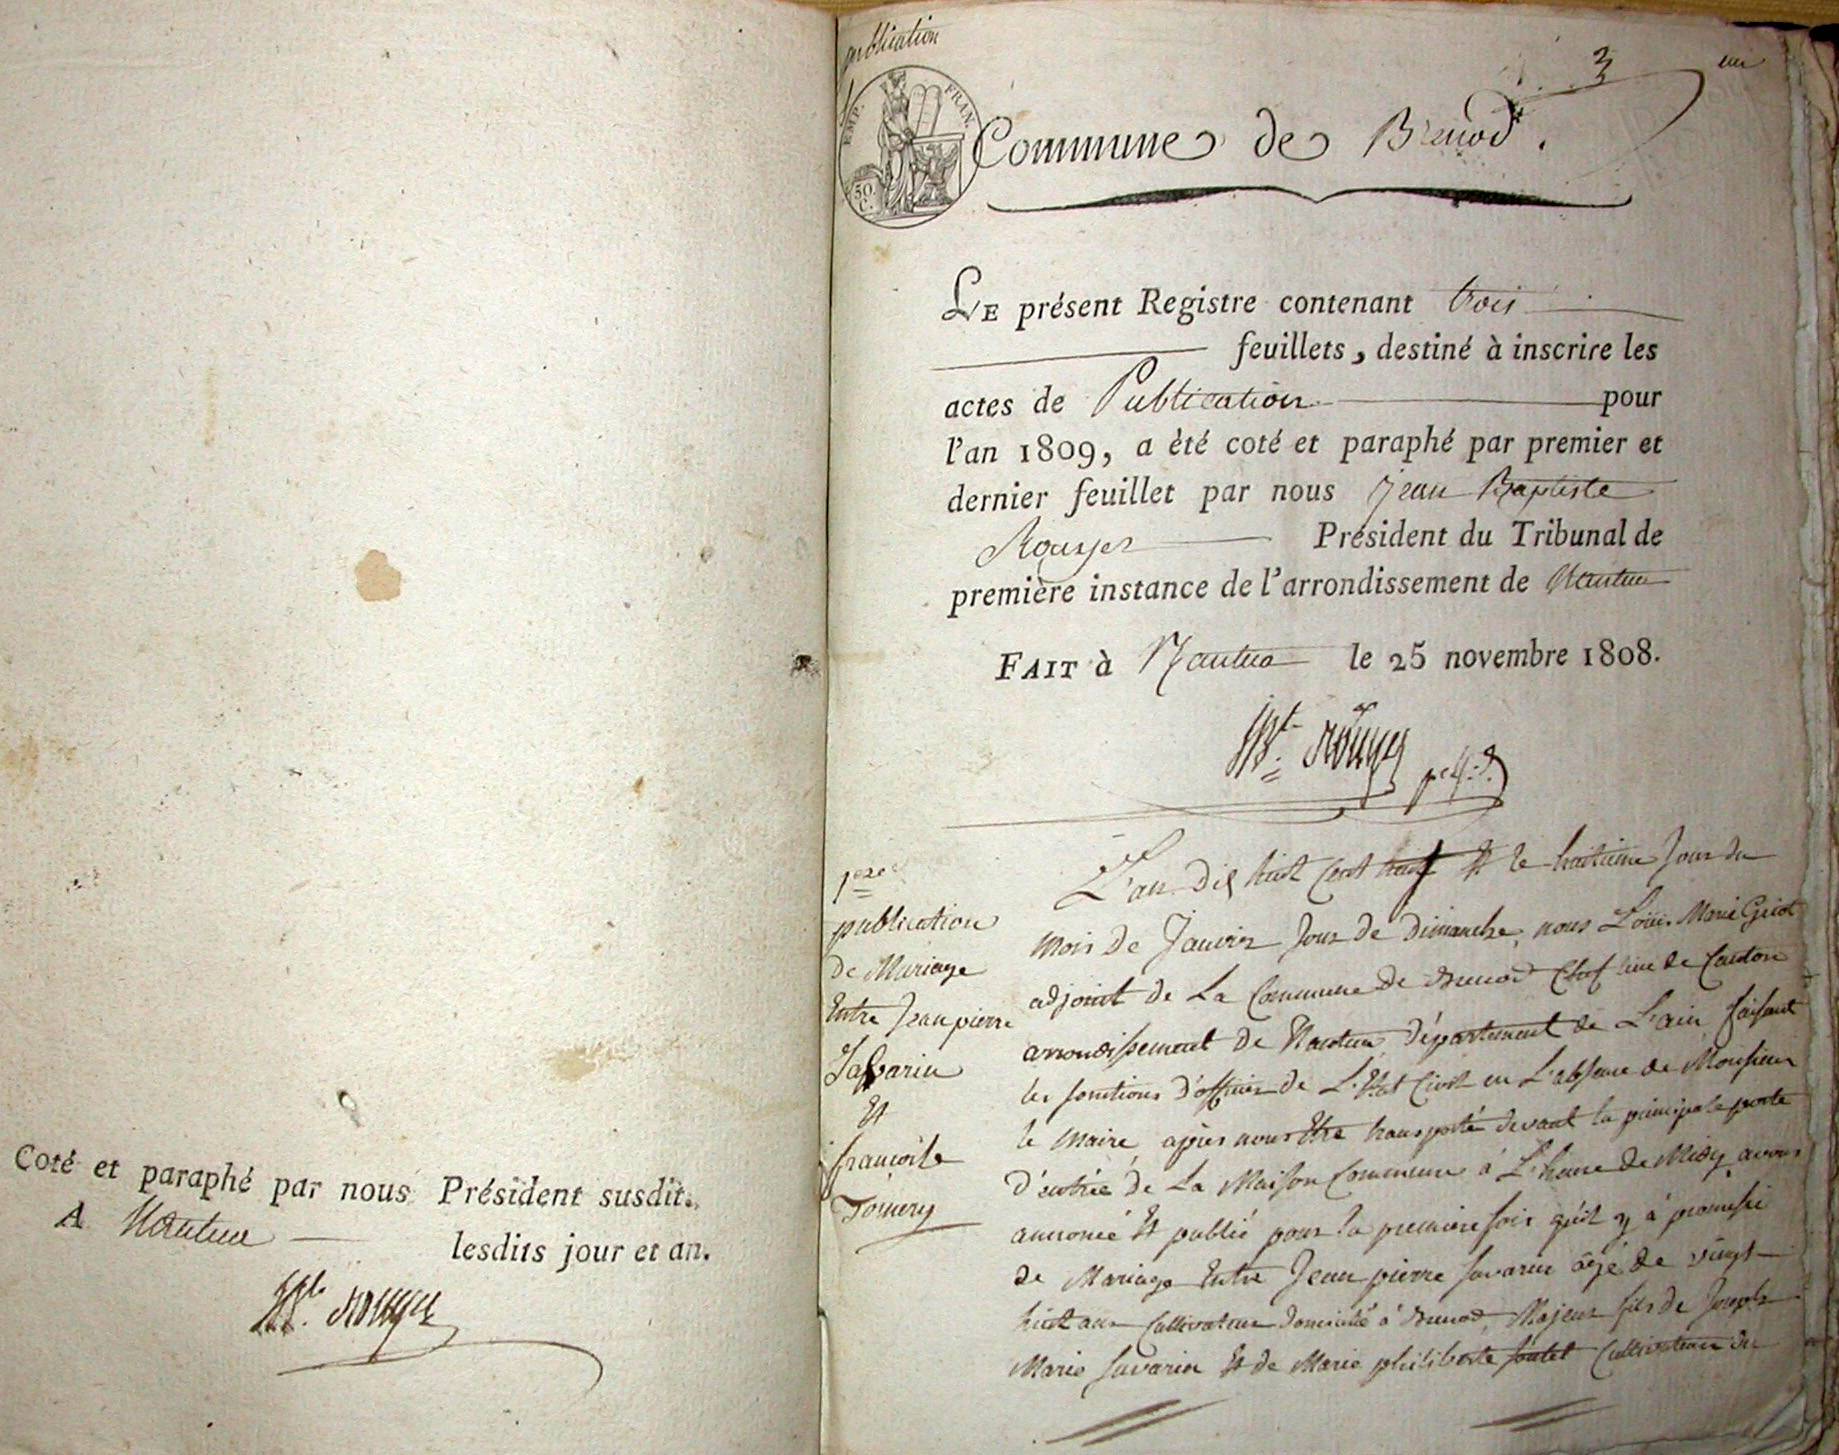 Coté et paraphé par nous Président susdit.
A Nantua lesdits jour et an.
Bte. Rouyer
publication
3
EMP. FRAN.
50 C.
Commune de Brenod.
LE présent Registre contenant trois
feuillets, destiné à inscrire les
actes de Publication pour
l'an 1809, a èté coté et paraphé par premier et
dernier feuillet par nous Jean Baptiste
Rouyer Président du Tribunal de
première instance de l'arrondissement de Nantua
FAIT à Nantua le 25 novembre 1808.
Bt. Rouyer
1ere
publication
de Mariage
Entre Jean pierre
Savarin
Et
françoise
L'an Dix huit Cent neuf Et le huitieme Jour du
Mois de Janvier Jour de Dimanche, nous Louis Marie
adjoint de La Commune de Brenod Chef lieu de Canton
arrondissement de Nantua Département de L'ain faisant
les fonctions D'officier de L'Etat Civil en L'absence de Monsieur
le Maire, après nous Etre transporté devant la principale porte
D'entrée de La Maison Commune à L'heure de Midy, avons
annoncé Et publié pour la premiere fois qu'il y à promesse
de Mariage Entre Jean pierre Savarin âgé de vingt
huit ans Cultivateur Domicilié à Brenod, Majeur fils de Joseph
Marie Savarin Et de Marie philiberte Cultivateur du